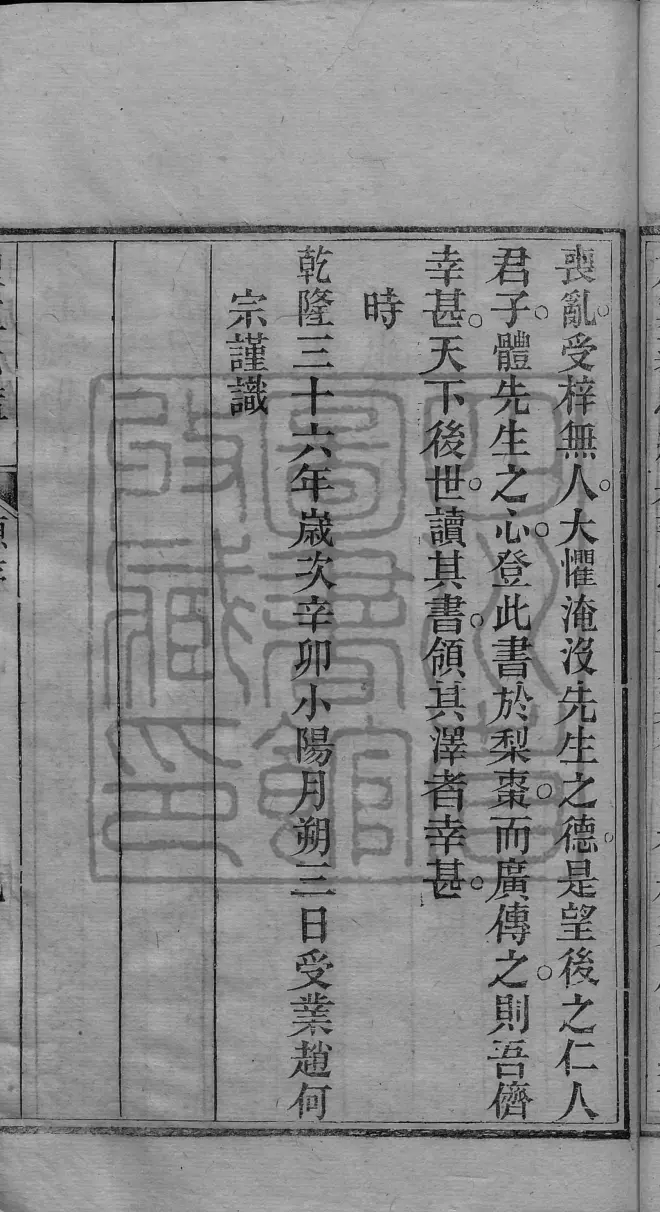 喪亂。受梓無人。大懼淹沒先生之德。是望後之仁人
君子。體先生之心。登此書於梨棗。而廣傳之。則吾儕
幸甚。天下後世。讀其書。領其澤者幸甚。
時
乾隆三十六年歲次辛卯小陽月朔三日受業趙何
宗謹識